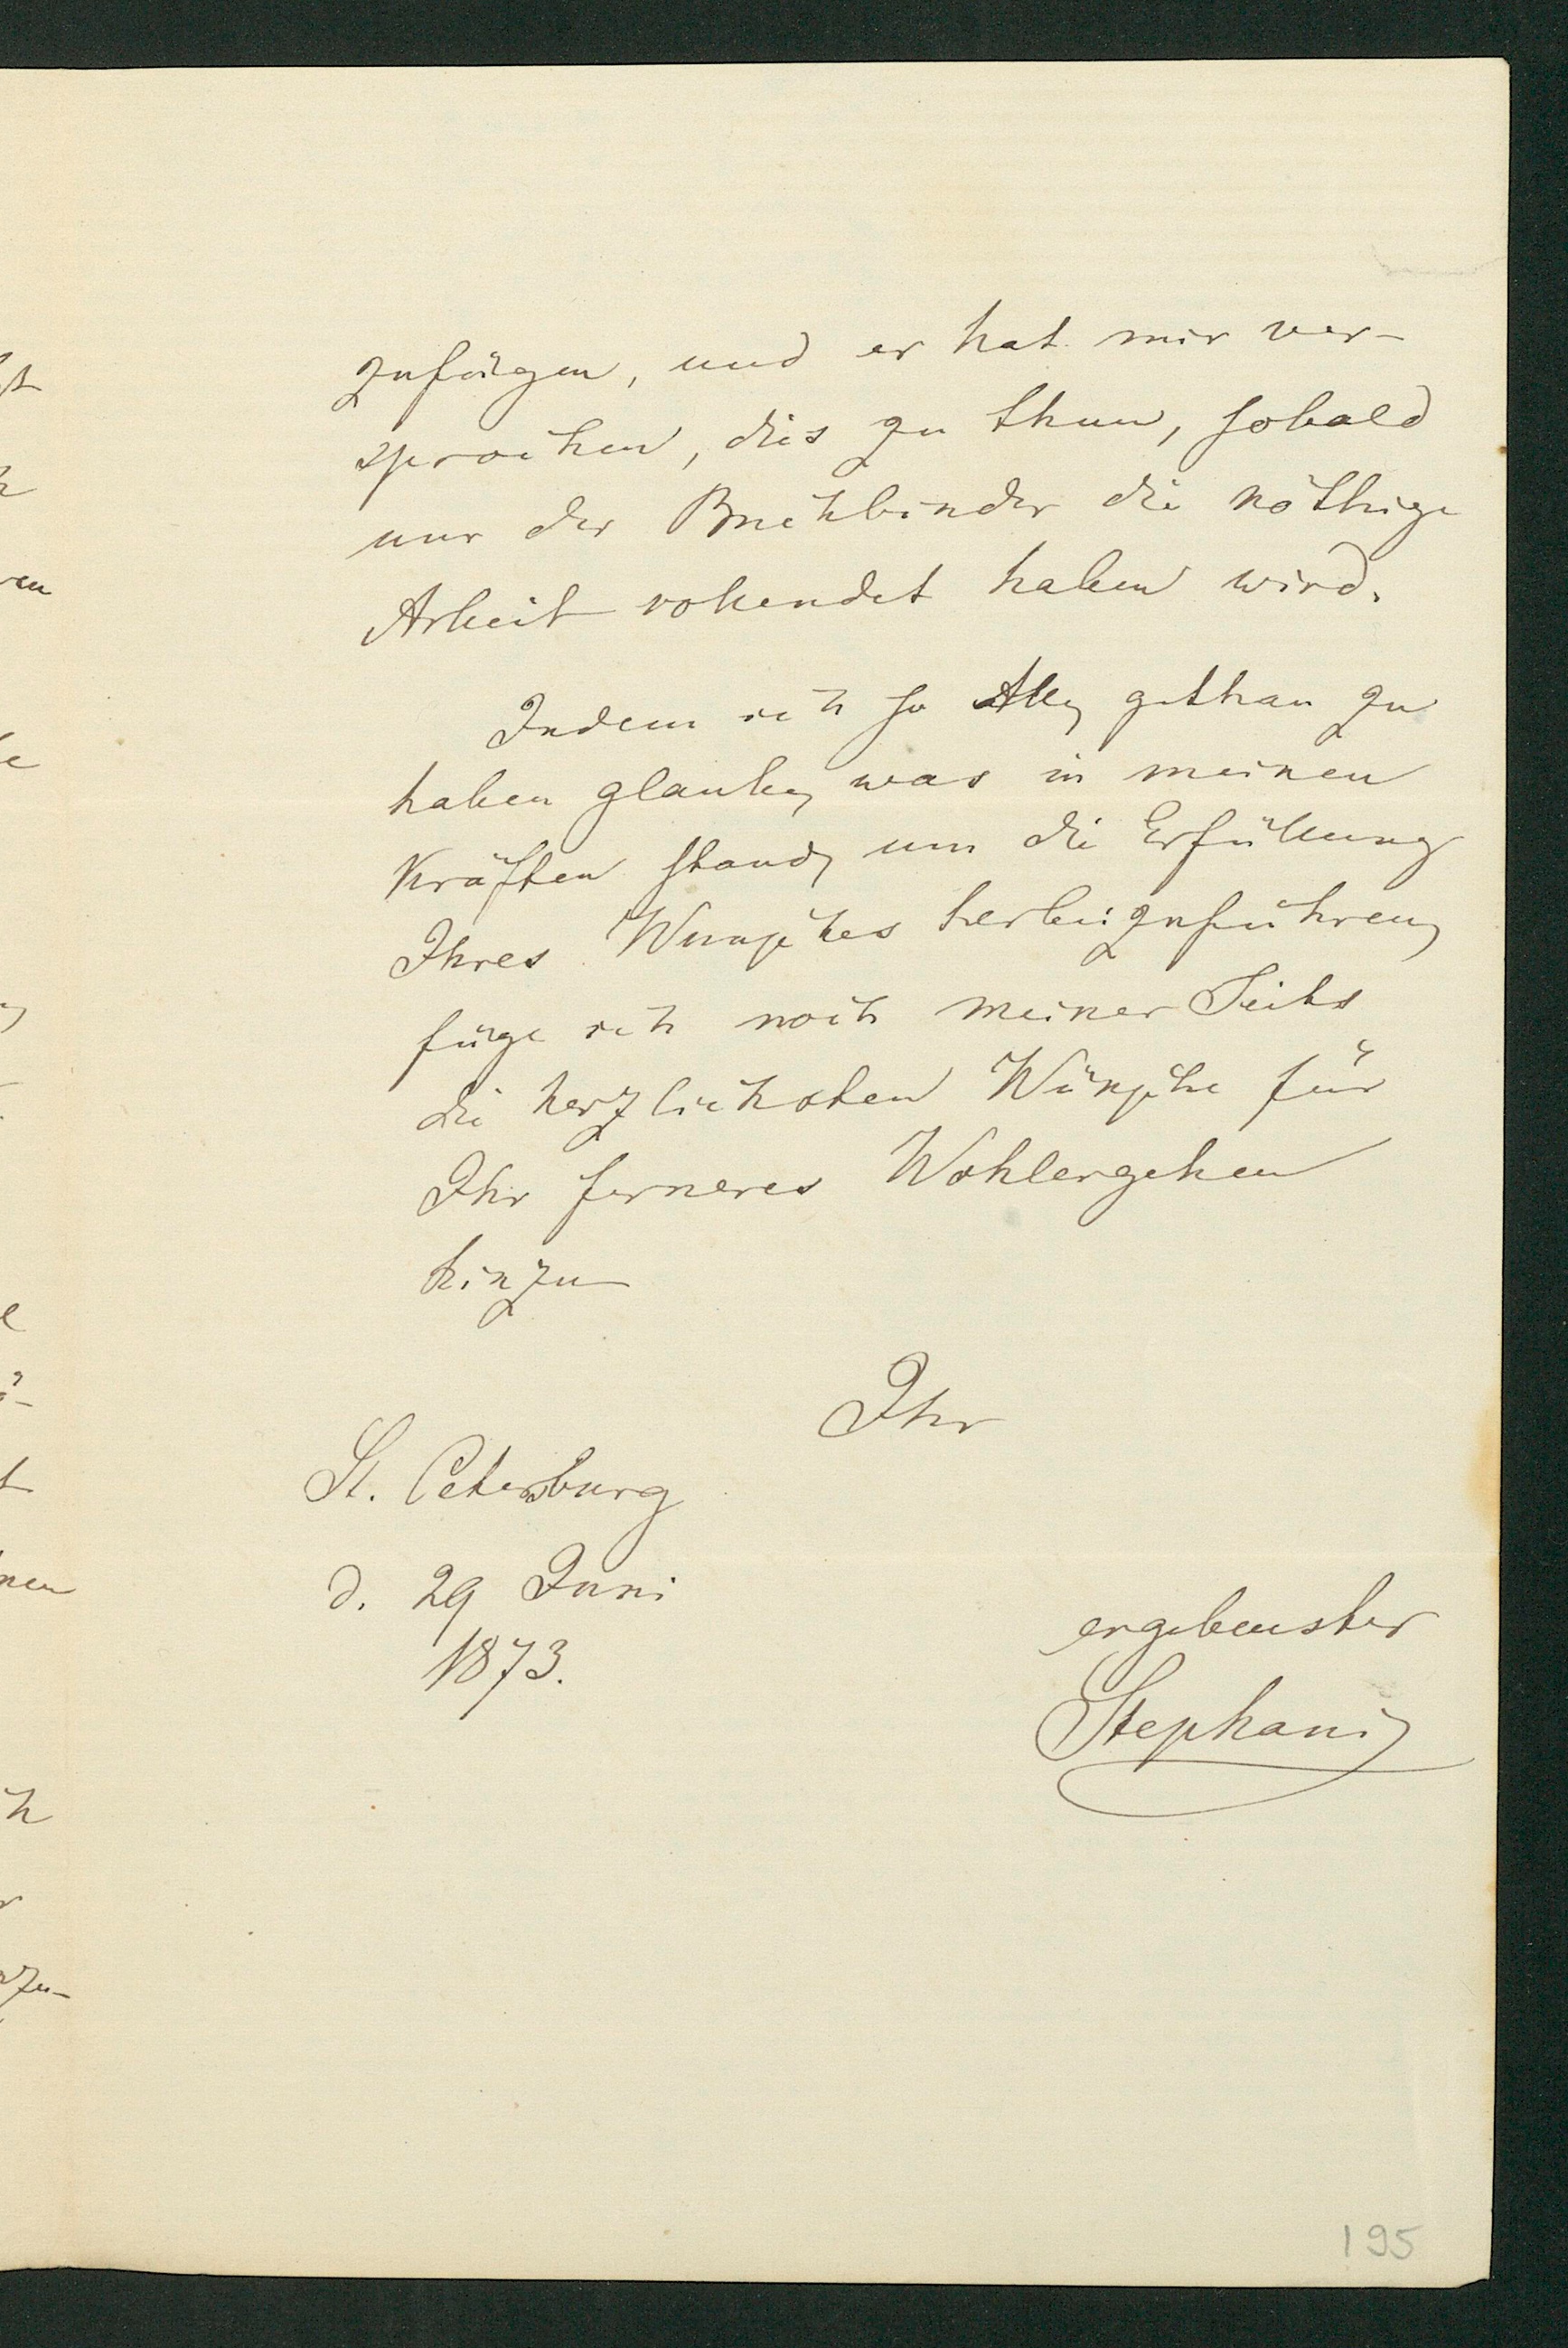 zufügen, und er hat mir ver-
sprochen, dies zu thun, sobald
nur der Buchbinder die nöthige
Arbeit vollendet haben wird.
Indem ich so Alles gethan zu
haben glaube, was in meinen
Kräften stand, um die Erfüllung
Ihres Wunsches herbeizuführen,
füge ich noch meiner Seits
die herzlichsten Wünsche für
Ihr ferneres Wohlergehen
hinzu
Ihr
St. Petersburg
d. 29 Juni
1873.
ergebenster
Stephani
195